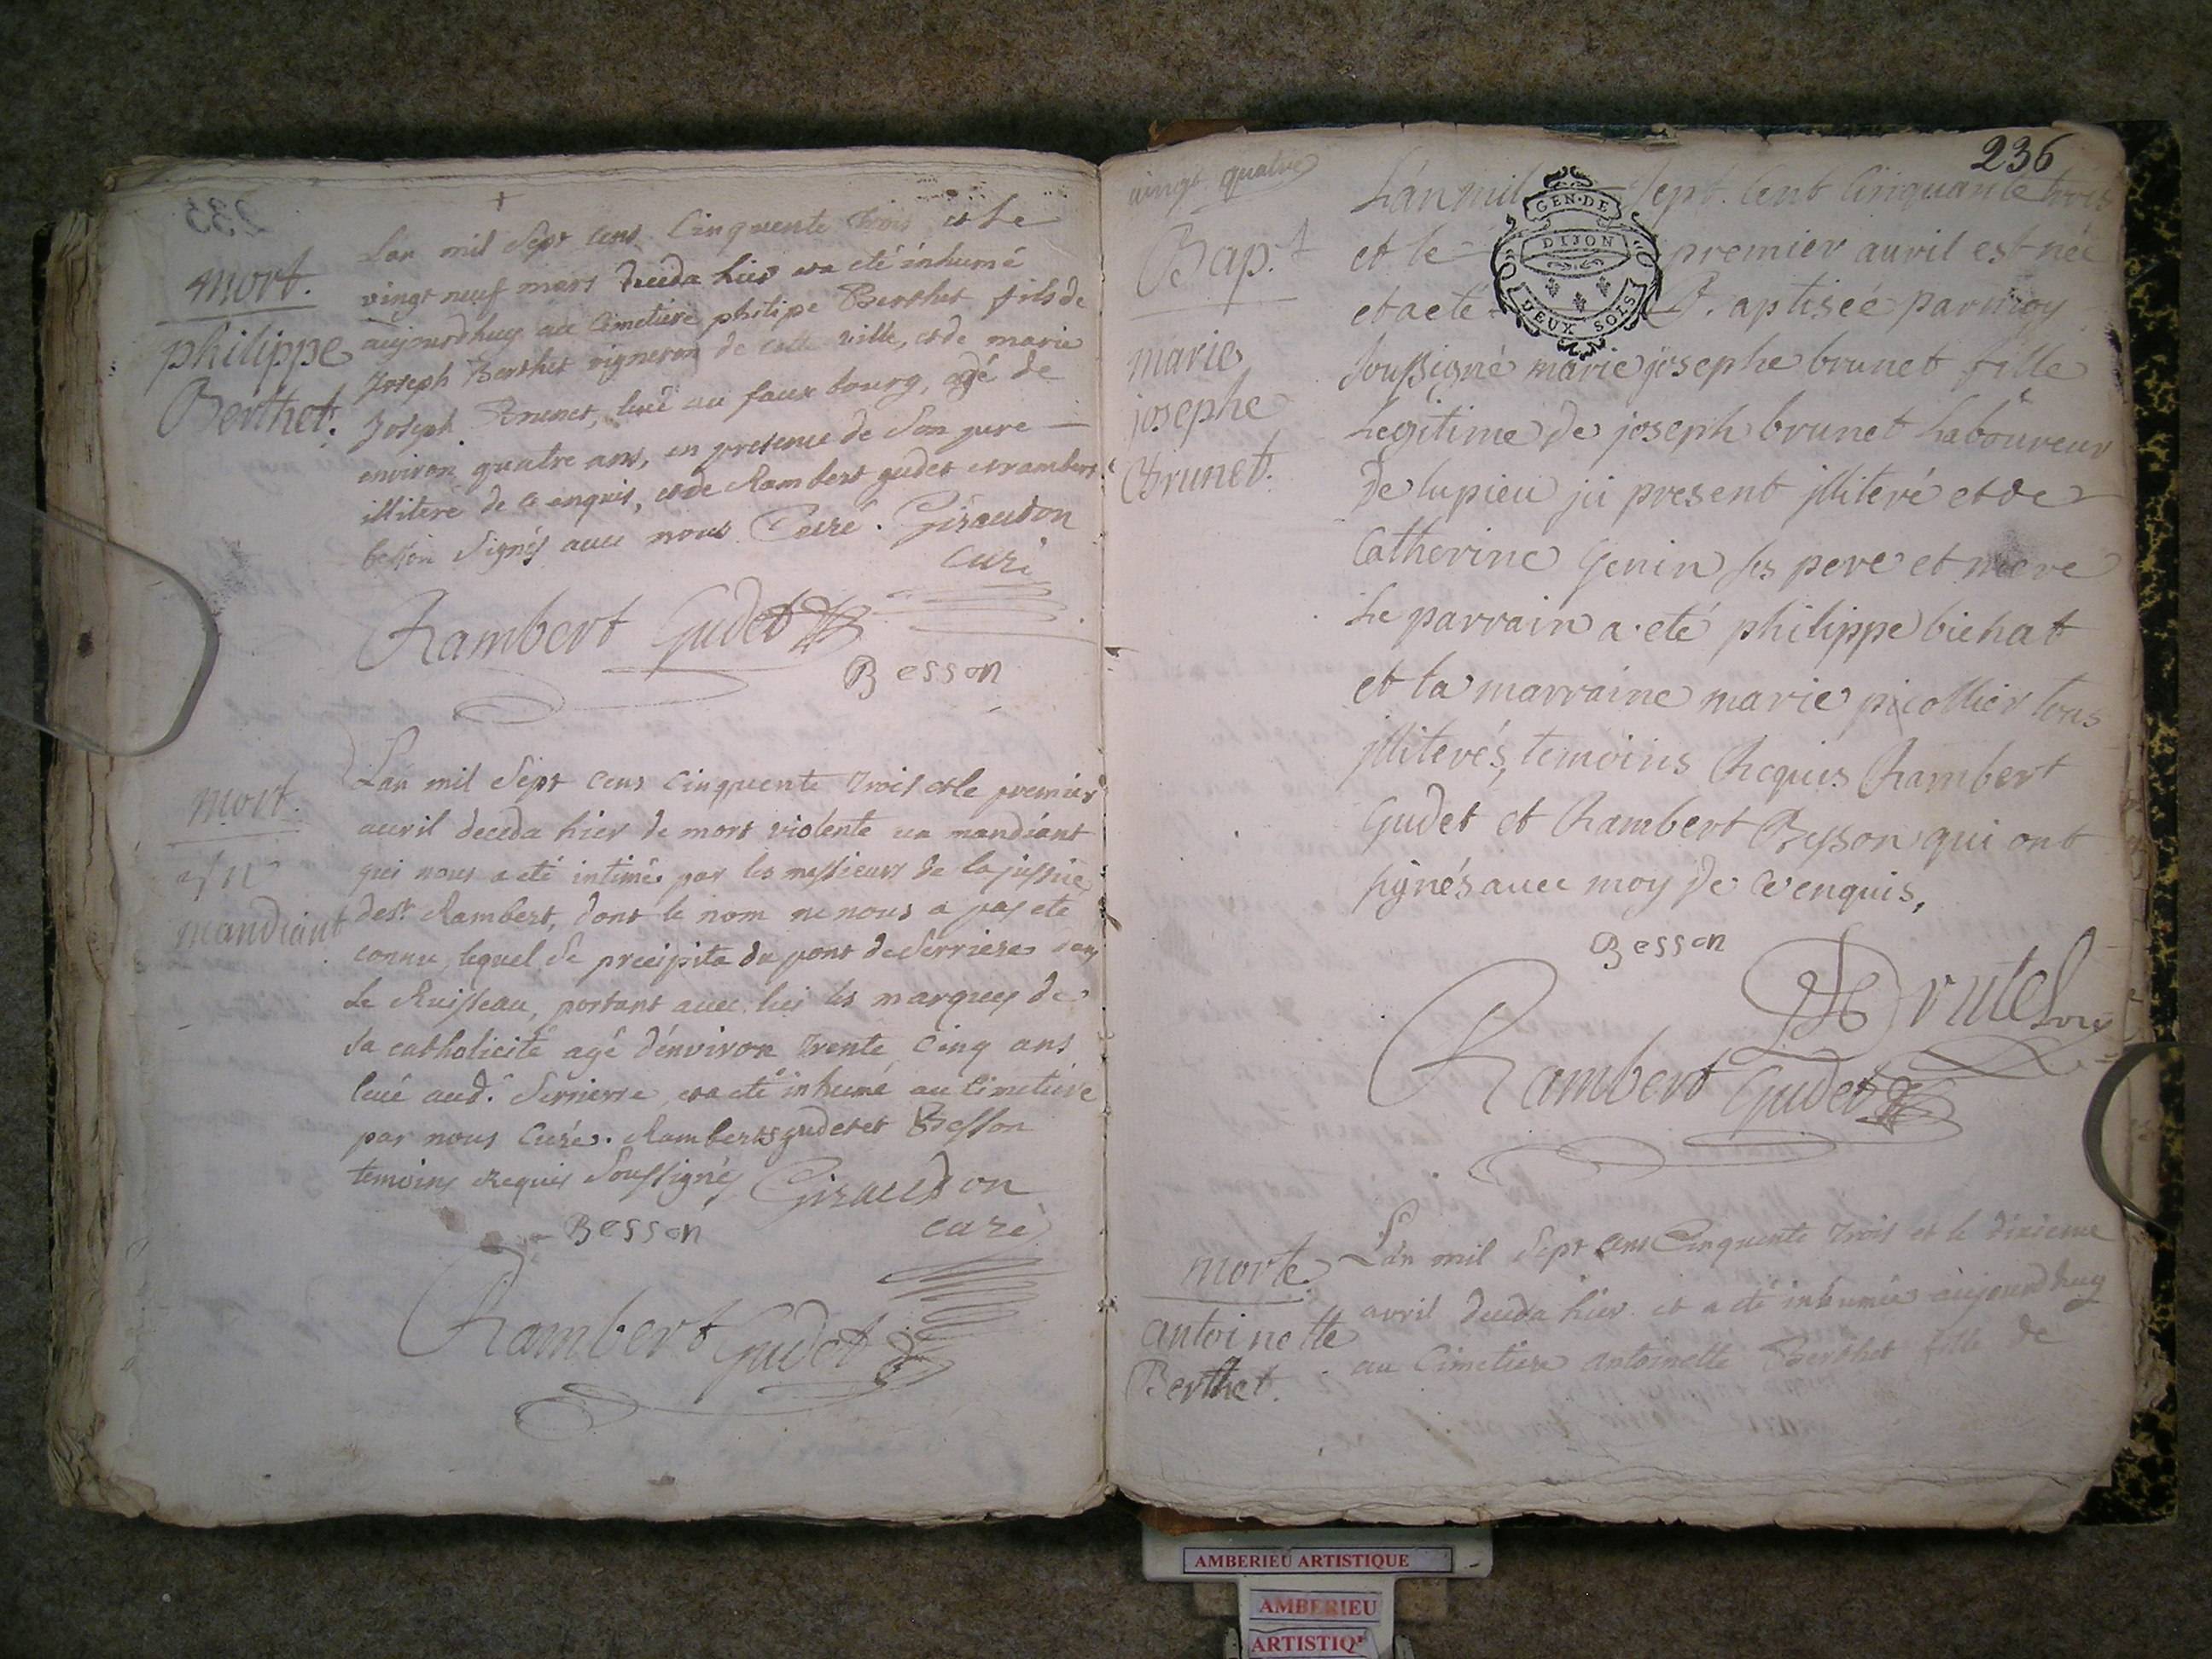 mort.
philippe
Berthet.
Lan mil Sept cens Cinquente trois et le
vingt neuf mars deceda hier et a eté inhumé
aujourdhuy au Cimetiere philipe Berthet fils de
Joseph Berthet vigneron de cette ville, et de marie
Joseph Brunet, leué au faux bourg, agé de
environ quatre ans, en presence de Son pere
illiteré de ce enquis, et de Rambert gudet et rambert
besson Signés auec nous Curé. Giraudon
curé
Rambert Gudet
Besson
mort.
mandiant
Lan mil Sept Cens Cinquente trois et le premier
auril deceda hier de mort violente un mandiant
qui nous a eté intimé par les messieurs de la justice
de st. Rambert, dont le nom ne nous a pas eté
connu, lequel Se precipita du pont de Serrieres dans
Le Ruisseau, portant auec lui les marques de
Sa catholicité agé d'environ trente Cinq ans
leué aud. Serriere, et a eté inhumé au Cimetiere
par nous Curé. Rambert gudet et Besson
temoins Requis Soussignés Giraudon
curé
Besson
Rambert Gudet
236
vingt quatre
GEN·DE
DIJON
DEUX SOLS
Bap.t
marie
josephe
Brunet.
L'an mil Sept. Cent Cinquante trois
et le premier auril est née
et a eté Baptiseé par moy
Soussigné marie josephe brunet fille
Legitime de joseph brunet Laboureur
de lupieu ici present illiteré et de
Catherine Genin Ses pere et mere
Le parrain a eté philippe bichat
et la marraine marie picollier tous
illiterés, temoins Requis Rambert
Gudet et Rambert Besson qui ont
signés auec moy de ce enquis,
Besson
Rambert Gudet
morte
antoinette
Berthet.
Lan mil Sept cens Cinquente trois et le dixieme
avril deceda hier et a eté inhumée aujourdhuy
au Cimetiere antoinette Berthet fille de
AMBERIEU ARTISTIQUE
AMBERIEU
ARTISTIQ